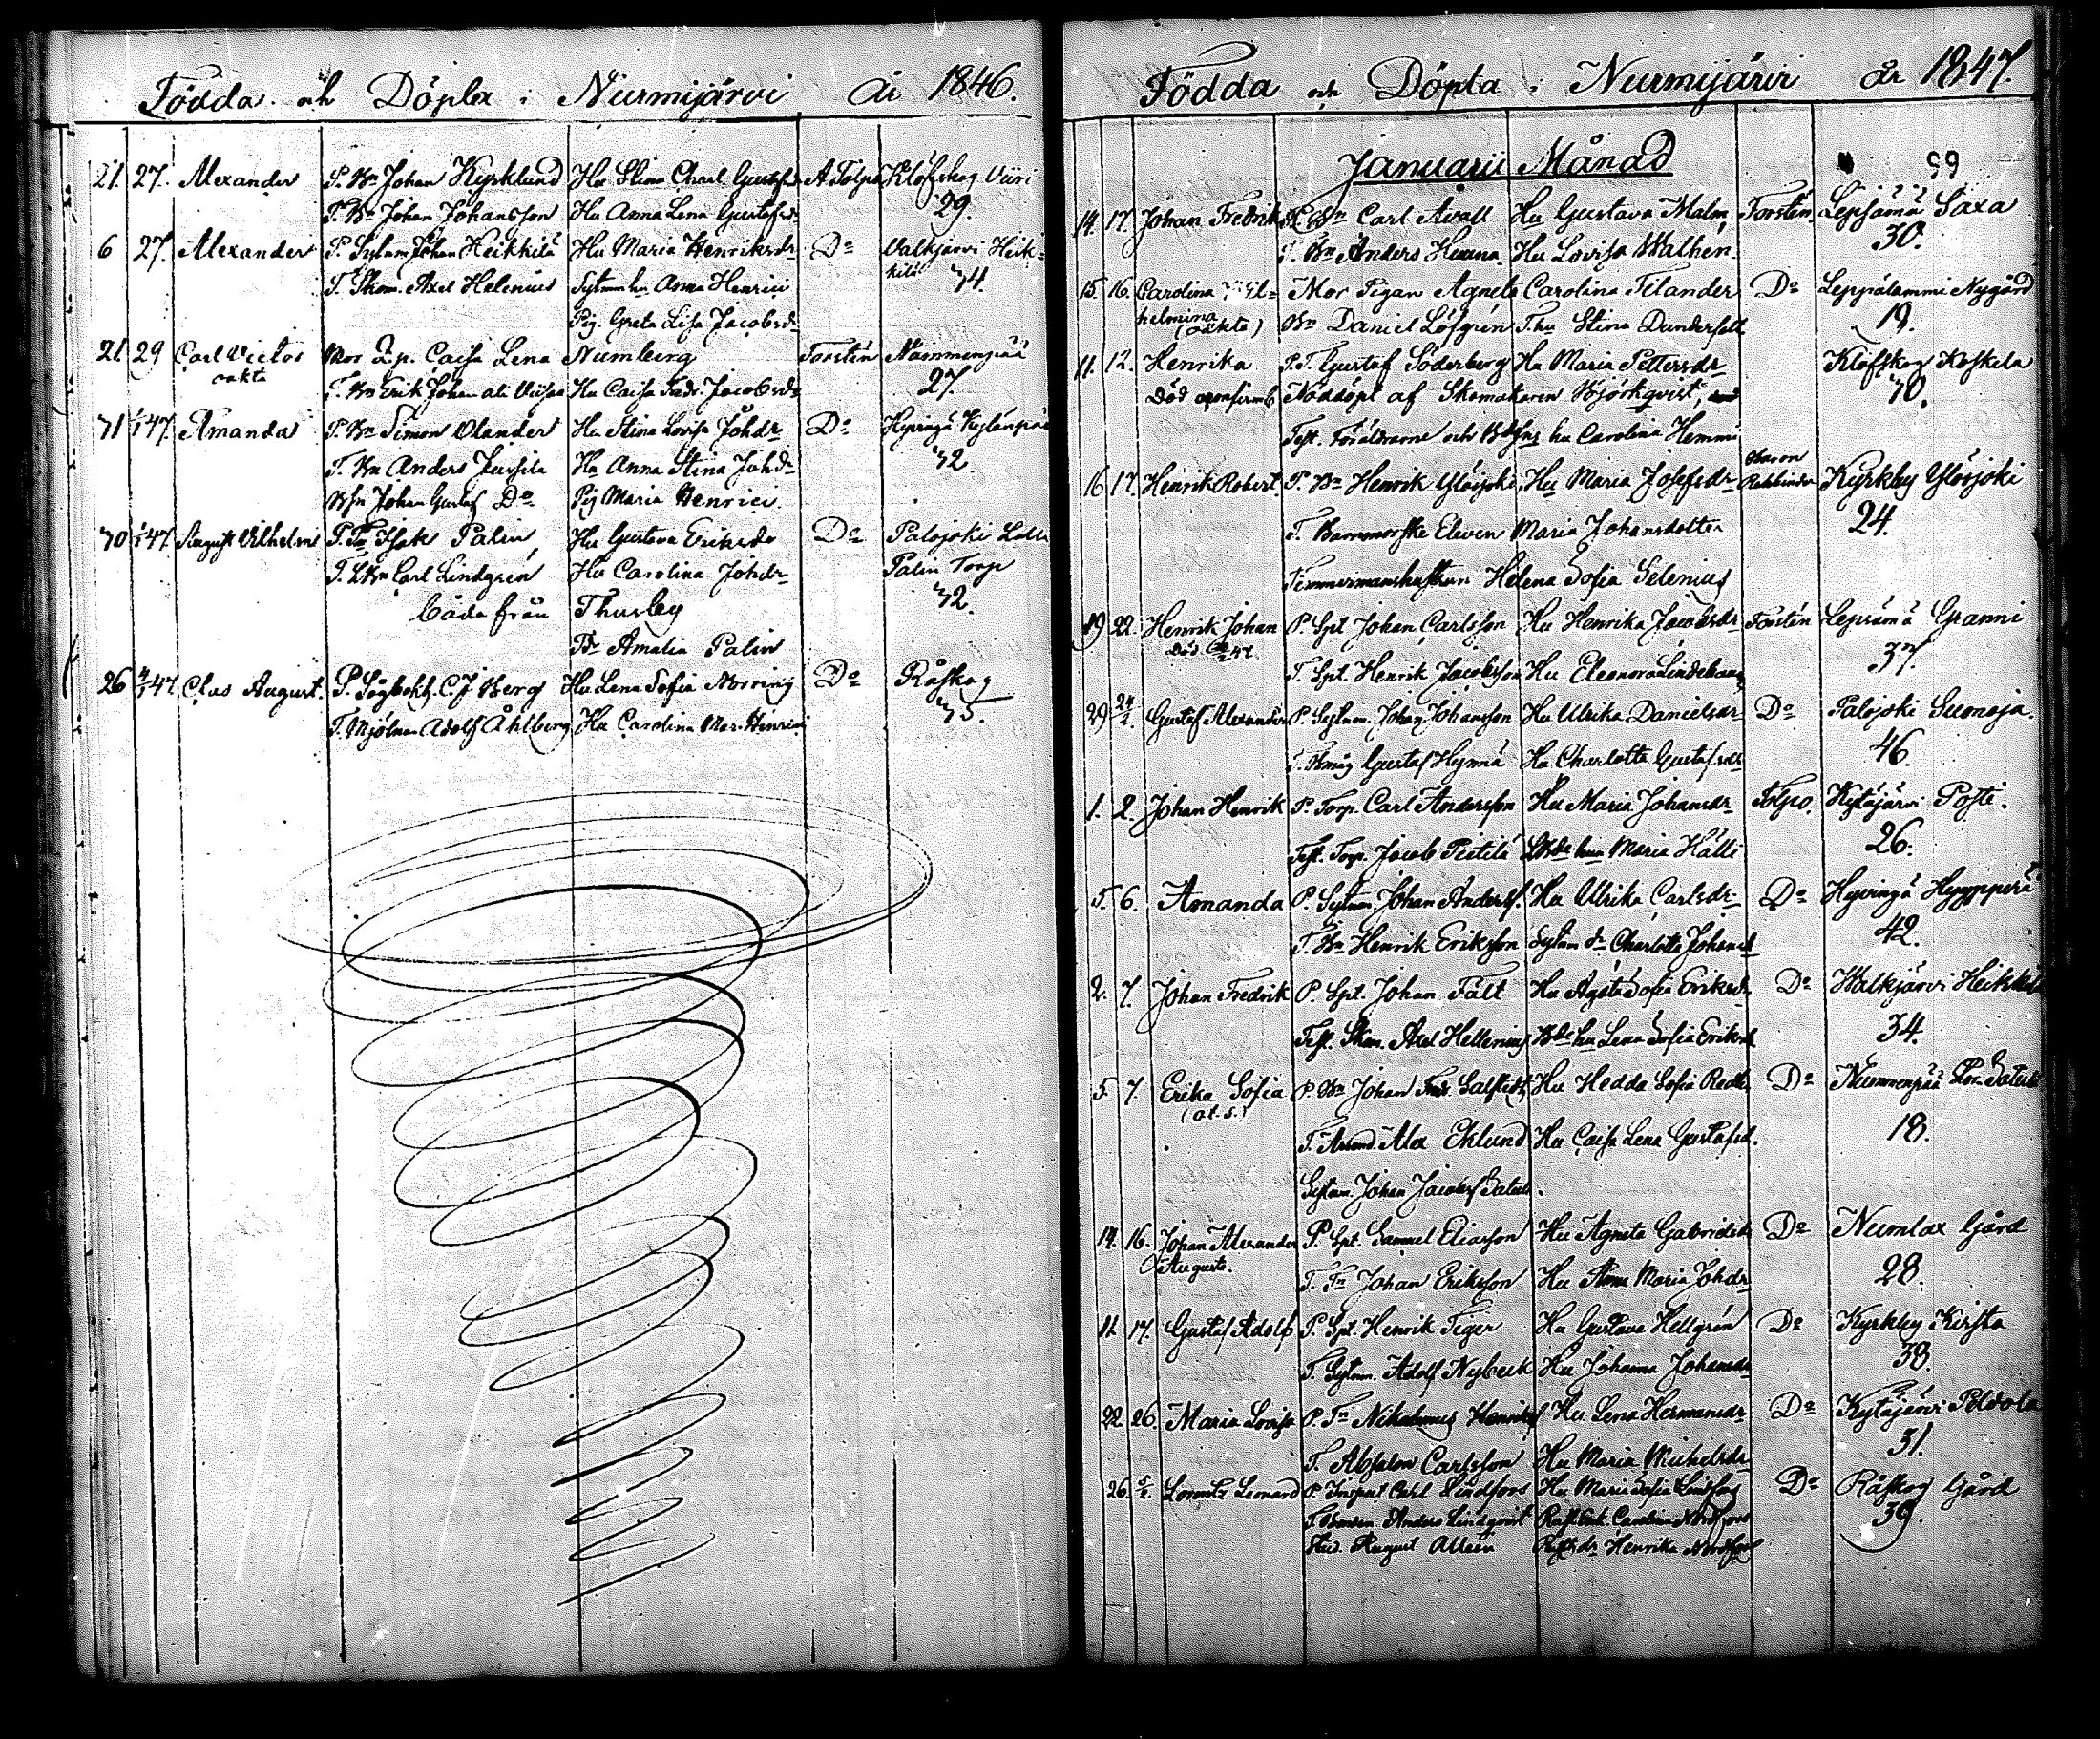 Födda och Döpta i Nurmijärvi År 1846.
21. 27. Alexander P. Bn Johan Kyrklund Hu Stina Charl. Gustafsd A Tolpo Klöfskog Viiri
T. Bn Johan Johansson Hu Anna Lena Gustafsdr 29.
6 27. Alexander P. Sytnm Johan Heikkilä Hu Maria Henriksdr Do Valkjärvi Heik-
T. Skom. Axel Helenius Sytnm hu Anna Henrici kilä 34.
Pig. Greta Lisa Jacobsdr
21 29 Carl Victor Mor Caisa Lena Numberg Forstén Nummenpää
oäkta T. Bn Erik Johan Hu Caisa Fredr. Jacobsdr 27.
31 1/1 47. Amanda P. Bn Simon Olander Hu Stina Lovisa Johdr Do Hyvingä
T. Bn Anders Jussila Hu Anna Stina Johdr 32.
Bsn Johan Gustaf Do Pig Maria Henrici.
30 47. August Vilhelm P. Palin Hu Gustava Eriksdr Do Palojoki
T. Carl Lindgrén Hu Carolina Johdr Palin Torp
båda från Thusby 32.
Amalia Palin
26 47. Clas August. P. C. J. Berg Hu Lena Sofia Norring Do Råskog
T. Mjöln. Adolf Åhlberg Hu Carolina Mar. Henrici 35.
Födda och Döpta i Nurmijärvi år 1847.
Januarii Månad 99
14. 17. Johan Fredrik Carl Avall Hu Gustava Malm Forstén Lepsämä Saxa
T. Bn Anders Huuna Hu Lovisa Walhén 30.
15. 16. Carolina Vil- Mor Pigan Agneta Carolina Filander Do Leppälammi Nygård
helmina (oäkta) Bn Daniel Löfgrén T. hu Stina Dunderfelt 19.
11. 12. Henrika P. T. Gustaf Söderberg Hu Maria Pettersdr Klöfskog Koskela
Död Nöddöpt af Skomakaren Björkqvist, 40.
Test. Föräldrarne och hu Carolina Hemmi
16. 17. Henrik Robert. P. Bn Henrik Ylöjoki Hu Maria Josefsdr Baron Rehbinder Kyrkby Ylöjoki
T. Barnmorske Eleven Maria Johansdotter 24.
Timmermanshustrun Helena Sofia Selenius
19. 22. Henrik Johan P. Spt Johan Carlsson Hu Henrika Jacobsdr Forstén Lepsämä Granni
Död 47. T. Spt. Henrik Jacobsson Hu Eleonora 37.
29. 24/2. Gustaf Alexander P. Sytnm. Johan Johansson Hu Ulrika Danielsdr Do Palojoki Suonoja.
T. Bmåg Gustaf Hu Charlotta Gustafsdr 46.
1. 2. Johan Henrik P. Torp. Carl Andersson Hu Maria Johansdr Tolpo. Kytäjärvi Posti.
Test. Torp. Jacob Pietilä hun Maria Hälli 26.
5. 6. Amanda P. Sytnm. Johan Anderss. Hu Ulrika Carlsdr Do Hyvingä Hyyppärä
T. Bn Henrik Eriksson Sytnm dr Charlotta Johansd 42.
2. 7. Johan Fredrik P. Spt. Johan Fält Hu Agata Sofia Eriksdr Do Walkjärvi Heikkilä
Test. Skom. Axel Hellenius hu Lena Sofia Eriksdr 34.
5. 7. Erika Sofia P. Bn Johan Hu Hedda Sofia Do Nummenpää
T. Alex Eklund Hu Caisa Lena Gustafsd. 18.
Sytnm. Johan Jacobss
14. 16. Johan Alexander P. Spt. Samuel Eliasson Hu Agneta Gabrielsd Do Numlax Gård
Auguste. T. Johan Eriksson Hu Anna Maria Johdr 28.
11. 17. Gustaf Adolf P. Spt. Henrik Tiger Hu Gustava Hellgrén Do Kyrkby Kirsta
T. Sytnm. Adolf Nybeck Hu Johanna Johansdr 38.
22. 26. Maria Lovisa P. Nikodemus Henriks Hu Lena Hermansdr Do Kytäjärvi Peldola
T. Absalon Carlsson Hu Maria Michelsdr 31.
26. 5/2. Lorentz Leonard P. Inspect Carl Lindfors Hu Maria Sofia Lindfors Do Råskog Gård
T. Anders Lindqvist Carolina 39.
Stud. August Alléen Henrika